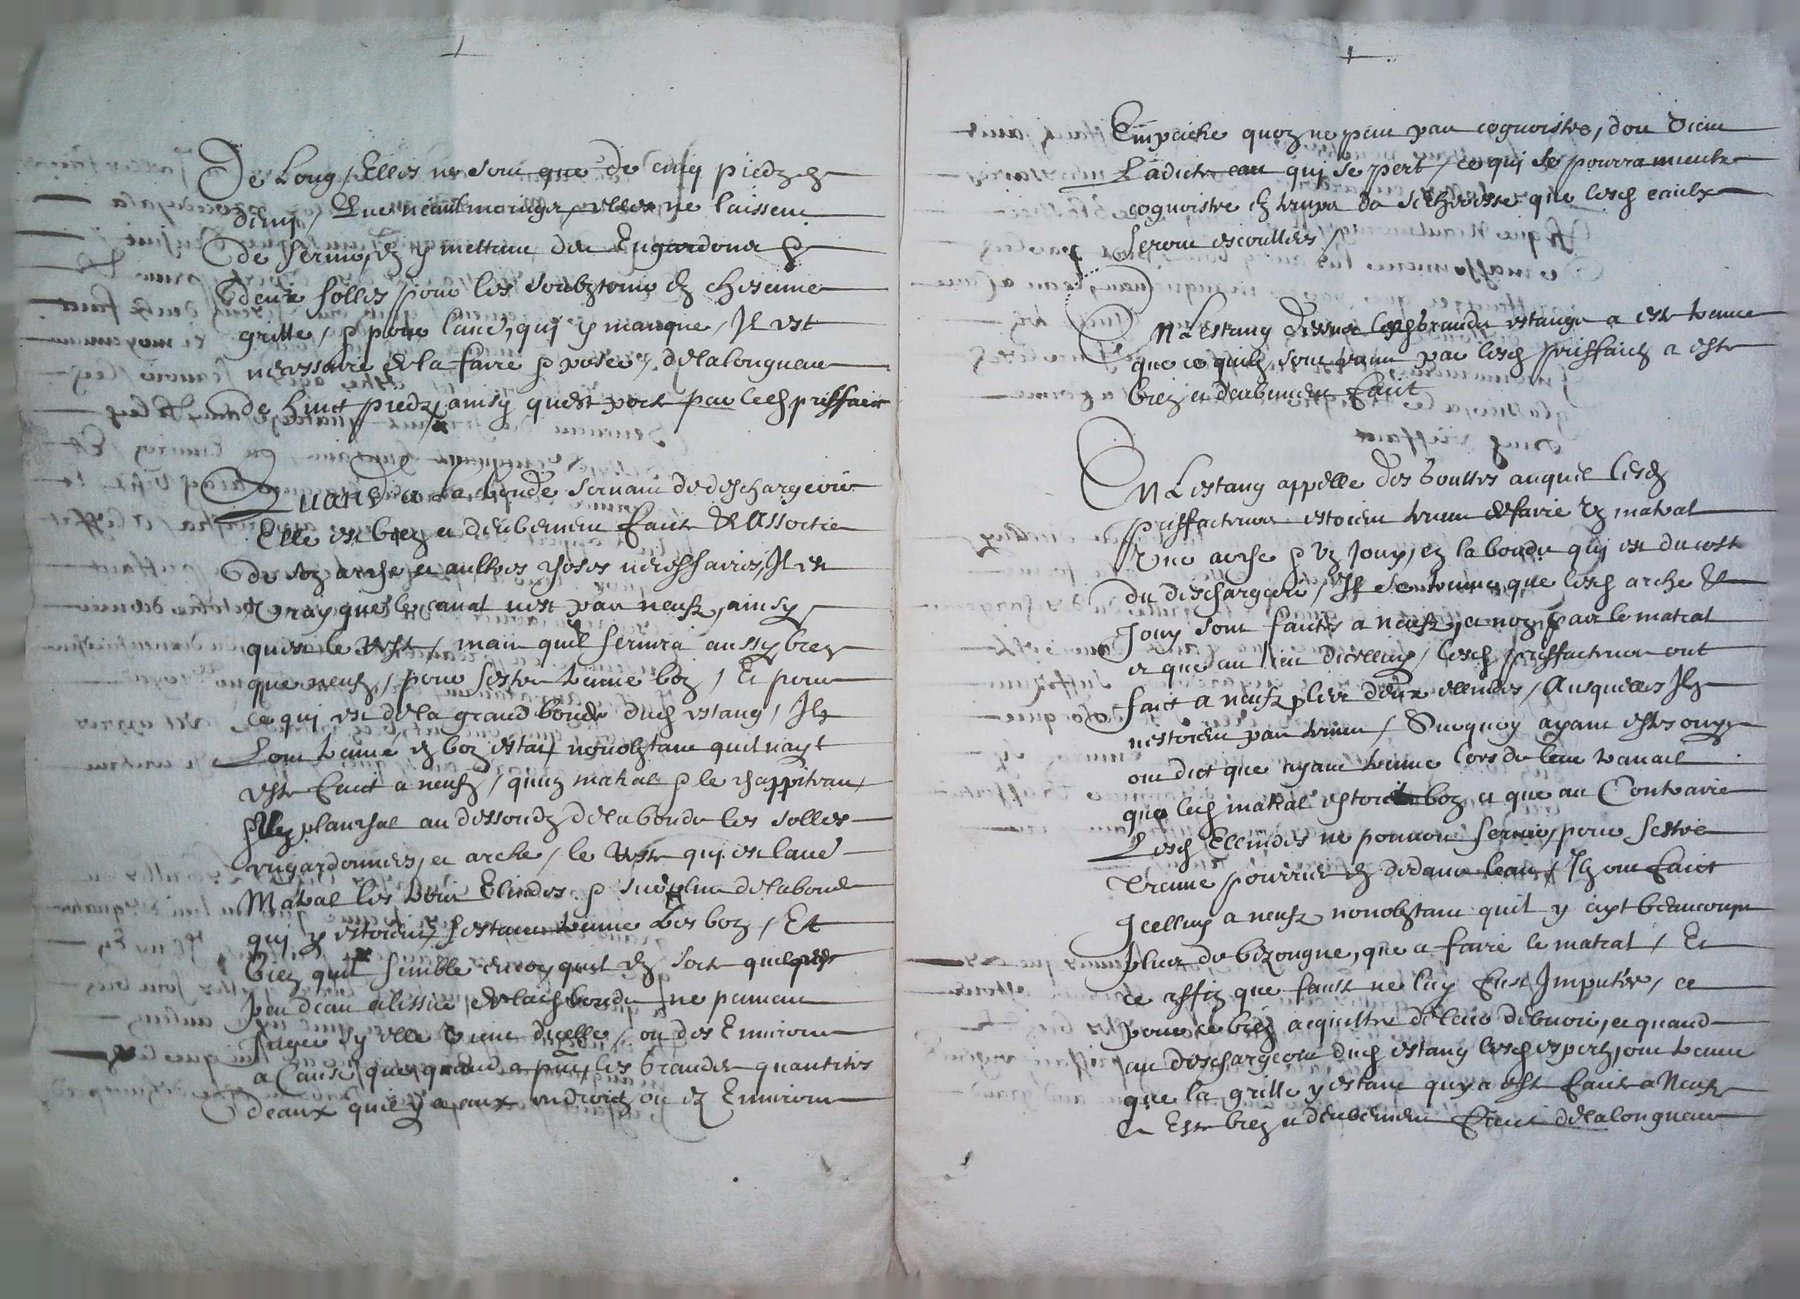 De Long, Elles ne sont que de cinq piedz &
demy, Que neantmoings elles ne laissent
de servir, y mettant des Engardones &
deux solles pour les soubztenir & chesenne
grille, & pour l'autre, qui y manque, Il est
necessaire de la faire & poser, de la longueur
de huict piedz, ainsy quest porté par lesd priffaict
Quand a la bonde servant de deschargeoir
Elle est bien et deubement faicte & Assortie
de son arche et aultres choses necessaires, Il est
Vray que le canal nest pas neufz, ainsy
quest le reste, mais quil servira aussy bien
que neufz, pour sestre treuvé bon, Et pour
ce qui est de la grand bonde dud estang, Ilz
Lont treuvé en bon estat, nonobstant quil nayt
esté faict a neufz, quun matral & le chappiteau,
& planchat au dessoubz de la bonde les solles
engardonnes, et arche, le reste qui est laud
Matral les deux Elindes & sueplue de la bonde
qui y estoient, sestant treuvé les bon, Et
bien quil semble encor quil en sorte quelque
peu deau a lissue de lad bonde, ne pouvant
Juger sy elle vient dicelle, ou des Environs
a Cause que quand a plus, les grandes quantités
deaux quil y a aux endroitz ou ez Environs
Empeche quon ne peut pas cognoistre, dou vient
Ladicte eau qui se pert, ce qui se pourra mieulx
cognoistre en temps de sécheresse que lesd eaulx
seront escoullées,
En Lestang dessus lesd grandz estangs a esté treuvé
que ce quilz sont tenu par lesd priffaictz a esté
bien et deubement faict
En Lestang appellé des boulles auquel lesd
priffacteurs estoient tenu de faire un matral
Une arche & un Jouy, en la bonde qui est du costé
du deschargeoir, Il se treuve que lesd arche &
Jouy sont faictz a neufz, et non pas le matral
et que au lieu dicelluy, lesd priffacteurs ont
faict a neufz plier deux ellindes, Ausquelles Ilz
nestoient pas tenu, Surquoy ayant estés ouys
ont dict que ayant treuvé lors de leur travail
que led matral estoit bon et que au Contraire
Lesd Ellindes ne pouvoit servir, pour sestre
treuvé pourries en dedans leau, Ilz ont faict
Icelluy a neufz nonobstant quil y ayt beaucoup
plus de bezongne, que a faire le matral, Et
ce affin que faute ne luy fust Imputée, ce
pour ce bien acquitter de leur debvoir, et quand
au deschargeoir dud estang lesd expertz, ont treuvé
que la grille y estant quy a esté faicte a Neufz
et Est bien et deubement faict de la longueur